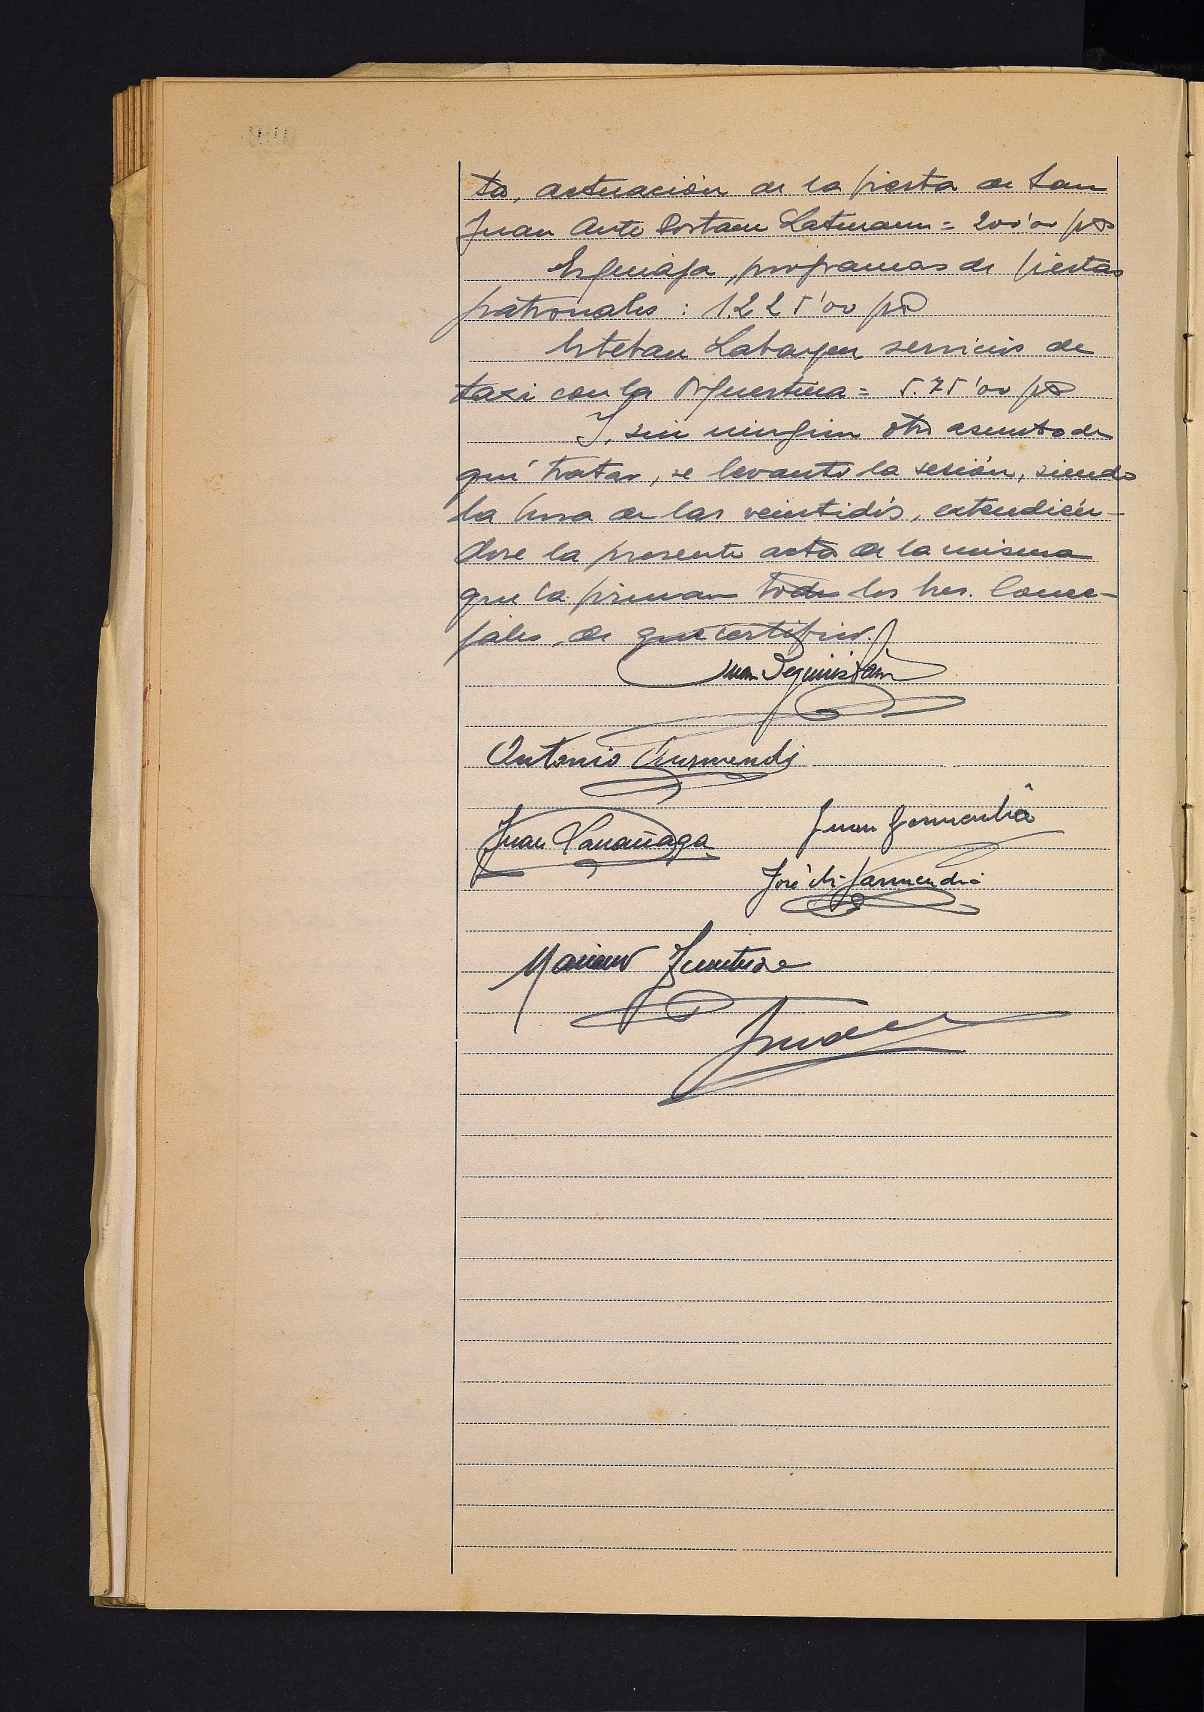 ta, actuación de la fiesta de San
Juan Ante Portam Latinam = 200'00 pts
programas de fiestas
patronales : 1225'00 pts
Esteban Labayen servicios de
taxi con la Orquestina = 575'00 pts
Y, sin ningún otro asunto de
qué tratar, se levantó la sesión, siendo
la hora de las veintidós, extendién-
dose la presente acta de la misma
que la firman todos los Sres. Conce-
jales, de que certifico.
Juan Yeguiristain
Antonio Aurmendi
Juan Larrañaga
Juan Garmendia
José Mª Garmendia
Mariano